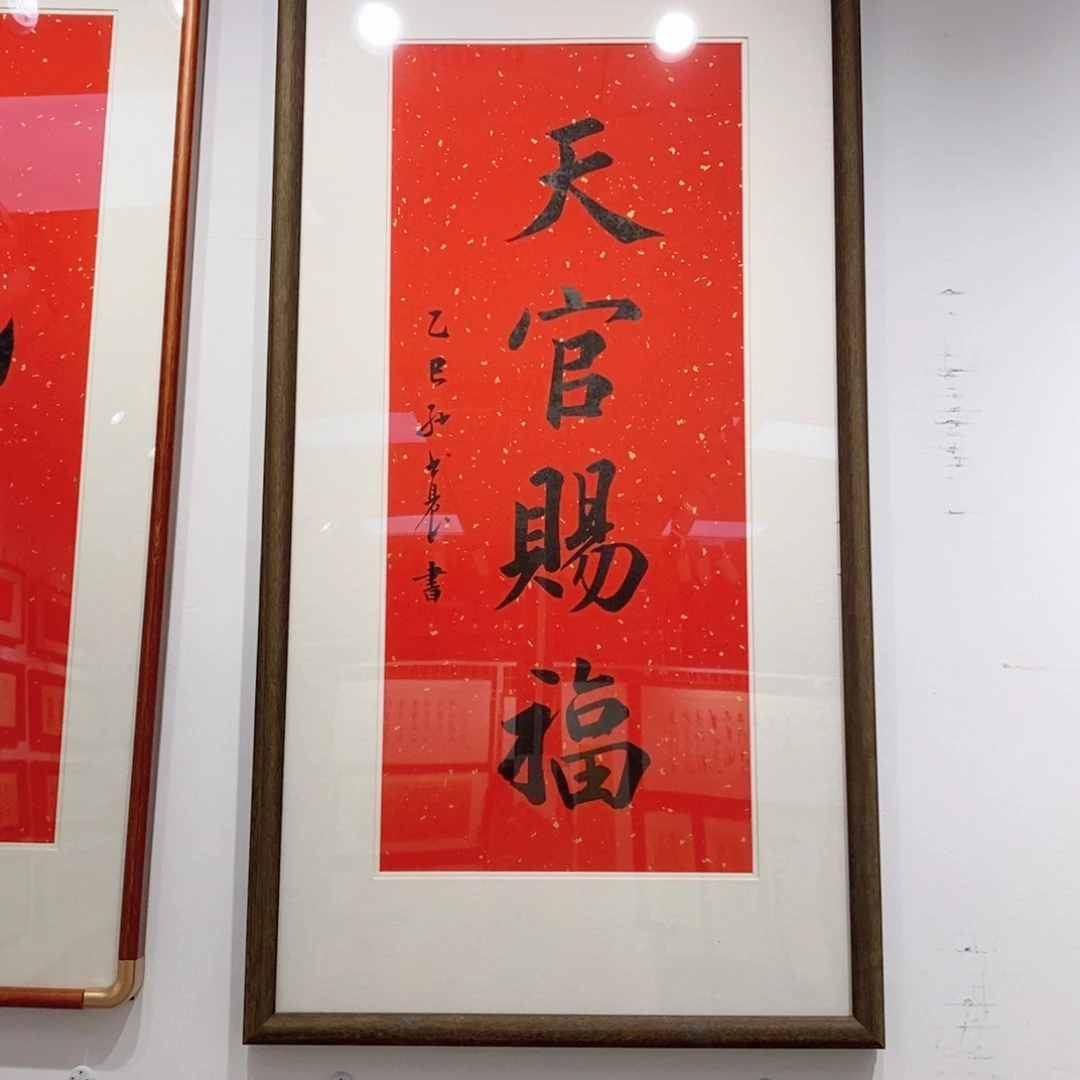 天官賜福
乙巳孙
書